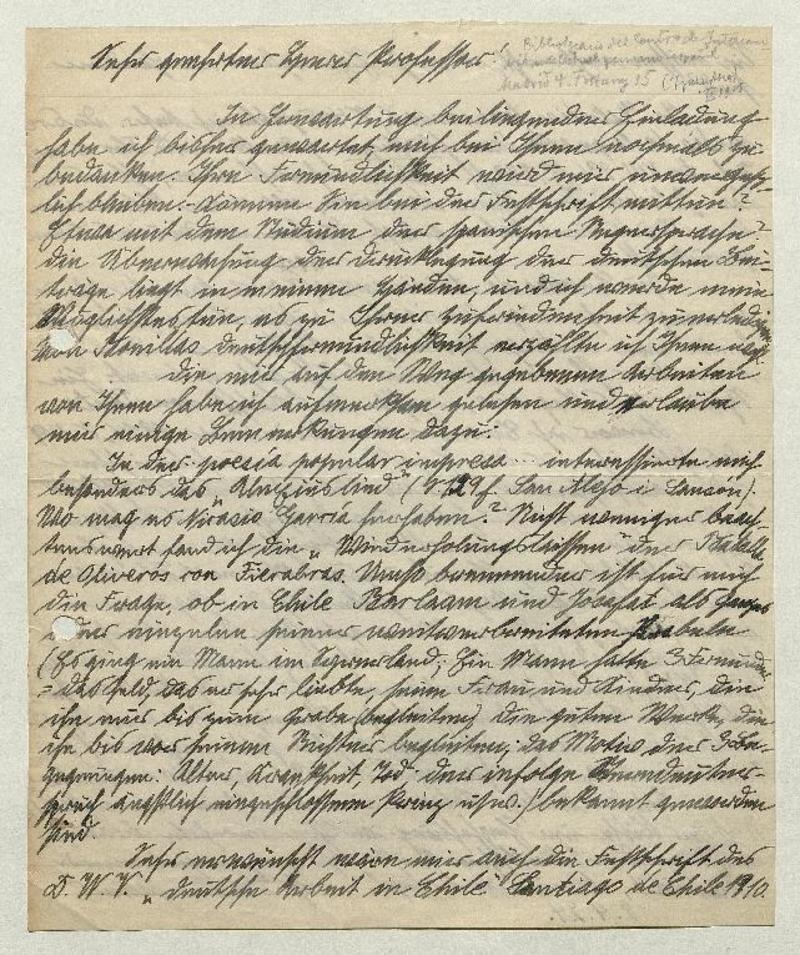 Sehr geehrter Herr Professor!
Bibliotecario del Centro de Intercam
bio intelectual germano-español
Madrid 4. Fortuny 15
In Erwartung beiliegender Einladung
habe ich bisher gewartet, mich bei Ihnen nochmals zu
bedanken. Ihre Freundlichkeit wird mir unvergess-
lich bleiben. - Können Sie bei der Festschrift mittun?
Etwa mit dem Studium der spanischen Negersprache?
Die Überwachung der Drucklegung der deutschen Bei-
träge liegt in meinen Händen, und ich werde mein
Möglichstes tun, es zu Ihrer Zufriedenheit zu erledigen.
Von Bonillas Deutschfreundlichkeit erzählte ich Ihnen
Die mir auf den Weg gegebenen Arbeiten
von Ihnen habe ich aufmerksam gelesen und erlaube
mir einige Bemerkungen dazu:
In der poesía popular impresa ... interessierte mich
besonders das „Alexiuslied" (S. 129 f. San Alejo i Lancon).
Wo mag es Nicasio García herhaben? Nicht weniger beach-
tenswert fand ich die „Wiederholungslaissen" der Batalla
de Oliveros con Fierabras. Umso brennender ist für mich
die Frage, ob in Chile Barlaam und Josafat als Ganzes
oder einzelne seiner weitverbreiteten Parabeln
(Es ging ein Mann im Syrerland; Ein Mann hatte 3 Freunde
= das Geld, das er sehr liebte, seine Frau und Kinder, die
ihn nur bis zum Grabe begleiten, die guten Werke, die
ihn bis vor seinen Richter begleiten; das Motiv der 3 Be-
gegnungen: Alter, Krankheit, Tod der infolge
ängstlich eingeschlossene Prinz usw.) bekannt geworden
sind.
Sehr erwünscht wäre mir auch die Festschrift des
D. W. V. „Deutsche Arbeit in Chile" Santiago de Chile 1910.